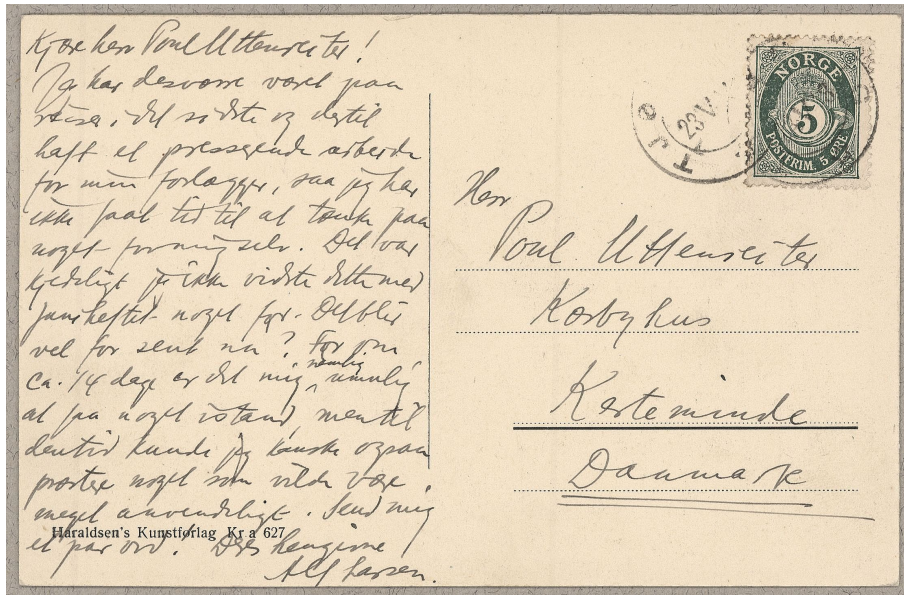 Kjære herr Poul Uttenreiter!
Jeg har desværre været paa
reiser i det sidste og dertil
haft et presserende arbeide
for min forlægger, saa jeg har
ikke faat tid til at tænke paa
noget for mig selv. Det var
kjedeligt jeg ikke vidste dette med
juniheftet noget før. Det blir
vel for sent nu? Før om
ca. 14 dage er det mig nemlig umulig
at faa noget istand, men til
den tid kunde jeg kanske ogsaa
præstere noget som vilde være
meget anvendeligt. Send mig
et par ord. Deres hengivne
Alf Larsen.
Haraldsen's Kunstforlag Kr a 627
NORGE
5
POSTFRIM. 5 ØRE
23 V
TJØ
Herr
Poul Uttenreiter
Kærbyhus
Kerteminde
Danmark